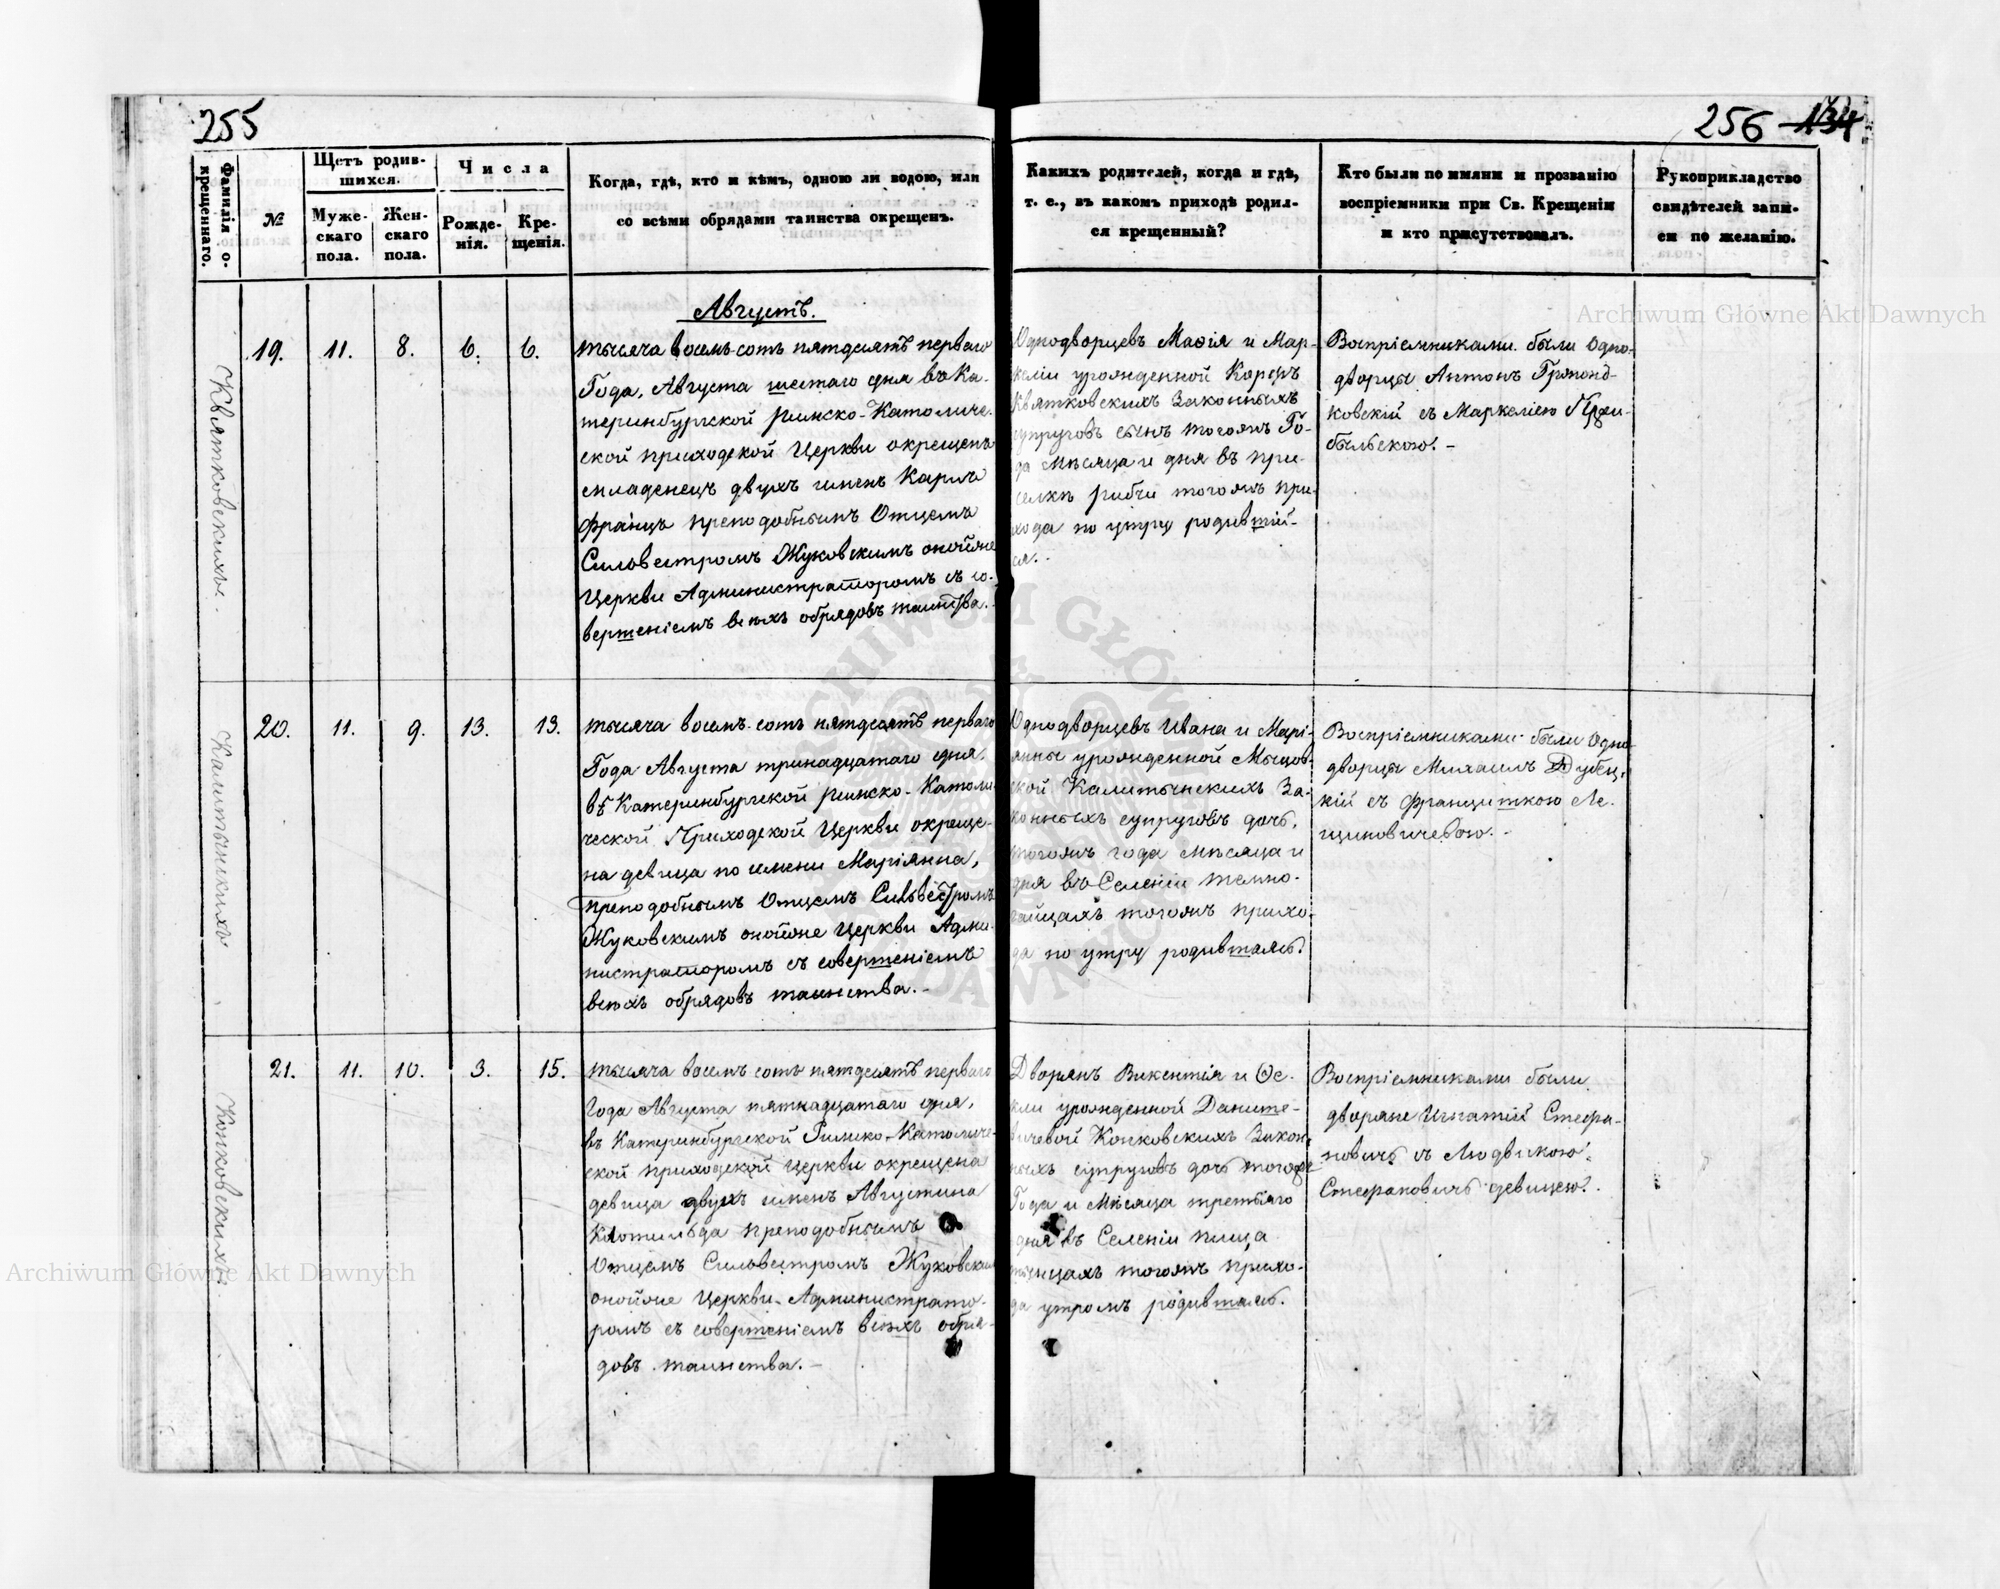 255
256 134
Фамилія о-
крещеннаго.
№
Щетъ родив-
шихся.
Муже-
скаго
пола.
Жен-
скаго
пола.
Числа
Рожде-
нія.
Кре-
щенія.
Когда, гдѣ, кто и кѣмъ, одною ли водою, или
со всѣми обрядами таинства окрещенъ.
Какихъ родителей, когда и гдѣ,
т. е., въ какомъ приходѣ родил-
ся крещенный?
Кто были по имяни и прозванію
воспріемники при Св. Крещеніи
и кто присутствовалъ.
Рукоприкладство
свидѣтелей запи-
си по желанію.
Августъ.
Квятковскихъ.
19. 11. 8. 6. 6.
тысяча восемь-сотъ пятдесятъ перваго
Года, Августа шестаго дня въ Ка-
теринбургской римско-Католиче-
ской приходской Церкви окрещенъ
младенецъ двухъ именъ Карлъ
Францъ преподобнымъ Отцемъ
Сильвестромъ Жуковскимъ онойже
Церкви Администраторомъ съ со-
вершеніемъ всѣхъ обрядовъ таинства.
Однодворцевъ Маѳія и Мар-
келіи урожденной
Квятковскихъ Законныхъ
супруговъ сынъ тогожъ Го-
да мѣсяца и дня въ при-
селкѣ тогожъ при-
хода по утру родивший-
ся.
Воспріемниками были Одно-
дворцы Антонъ
ковскій съ Маркеліею
быльскою. -
Калитынскихъ
20. 11. 9. 13. 13.
тысяча восемь-сотъ пятдесятъ перваго
Года Августа тринадцатаго дня,
въ Катеринбургской римско-Католи-
ческой Приходской Церкви окреще-
на девица по имени Маріянна,
преподобнымъ Отцемъ Сильвестромъ
Жуковскимъ онойже Церкви Адми-
нистраторомъ съ совершеніемъ
всѣхъ обрядовъ таинства. -
Однодворцевъ Ивана и Марі-
янны урожденной Мыцов-
ской Калитынскихъ За-
конныхъ супруговъ дочь,
тогожъ года мѣсяца и
дня въ Селеніи темно-
гайцахъ тогожъ прихо-
да по утру родившаясь.
Воспріемниками были Одно-
дворцы Михаилъ Дубец-
кій съ Францишкою Ле-
щиновичевою. -
Конковскихъ.
21. 11. 10. 3. 15.
тысяча восемь сотъ пятдесятъ перваго
Года Августа пятнадцатаго дня,
въ Катеринбургской Римско-Католиче-
ской приходской церкви окрещена
девица двухъ именъ Августина
Клотильда преподобнымъ
Отцемъ Сильвестромъ Жуковским
онойже Церкви Администрато-
ромъ съ совершеніемъ всѣхъ обря-
довъ таинства. -
Дворянъ Викентія и Ѳе-
кли урожденной Даниле-
вичевой Конковскихъ Закон-
ныхъ супруговъ дочь тогоже
Года и Мѣсяца третьяго
дня въ Селеніи
тогожъ прихо-
да утромъ родившаясь.
Воспріемниками были
дворяне Игнатій Стефа-
новичъ съ Людвикою
Стефановичъ девицею.
Archiwum Główne Akt Dawnych
Archiwum Główne Akt Dawnych
ARCHIWUM GŁÓWNE AKT DAWNYCH